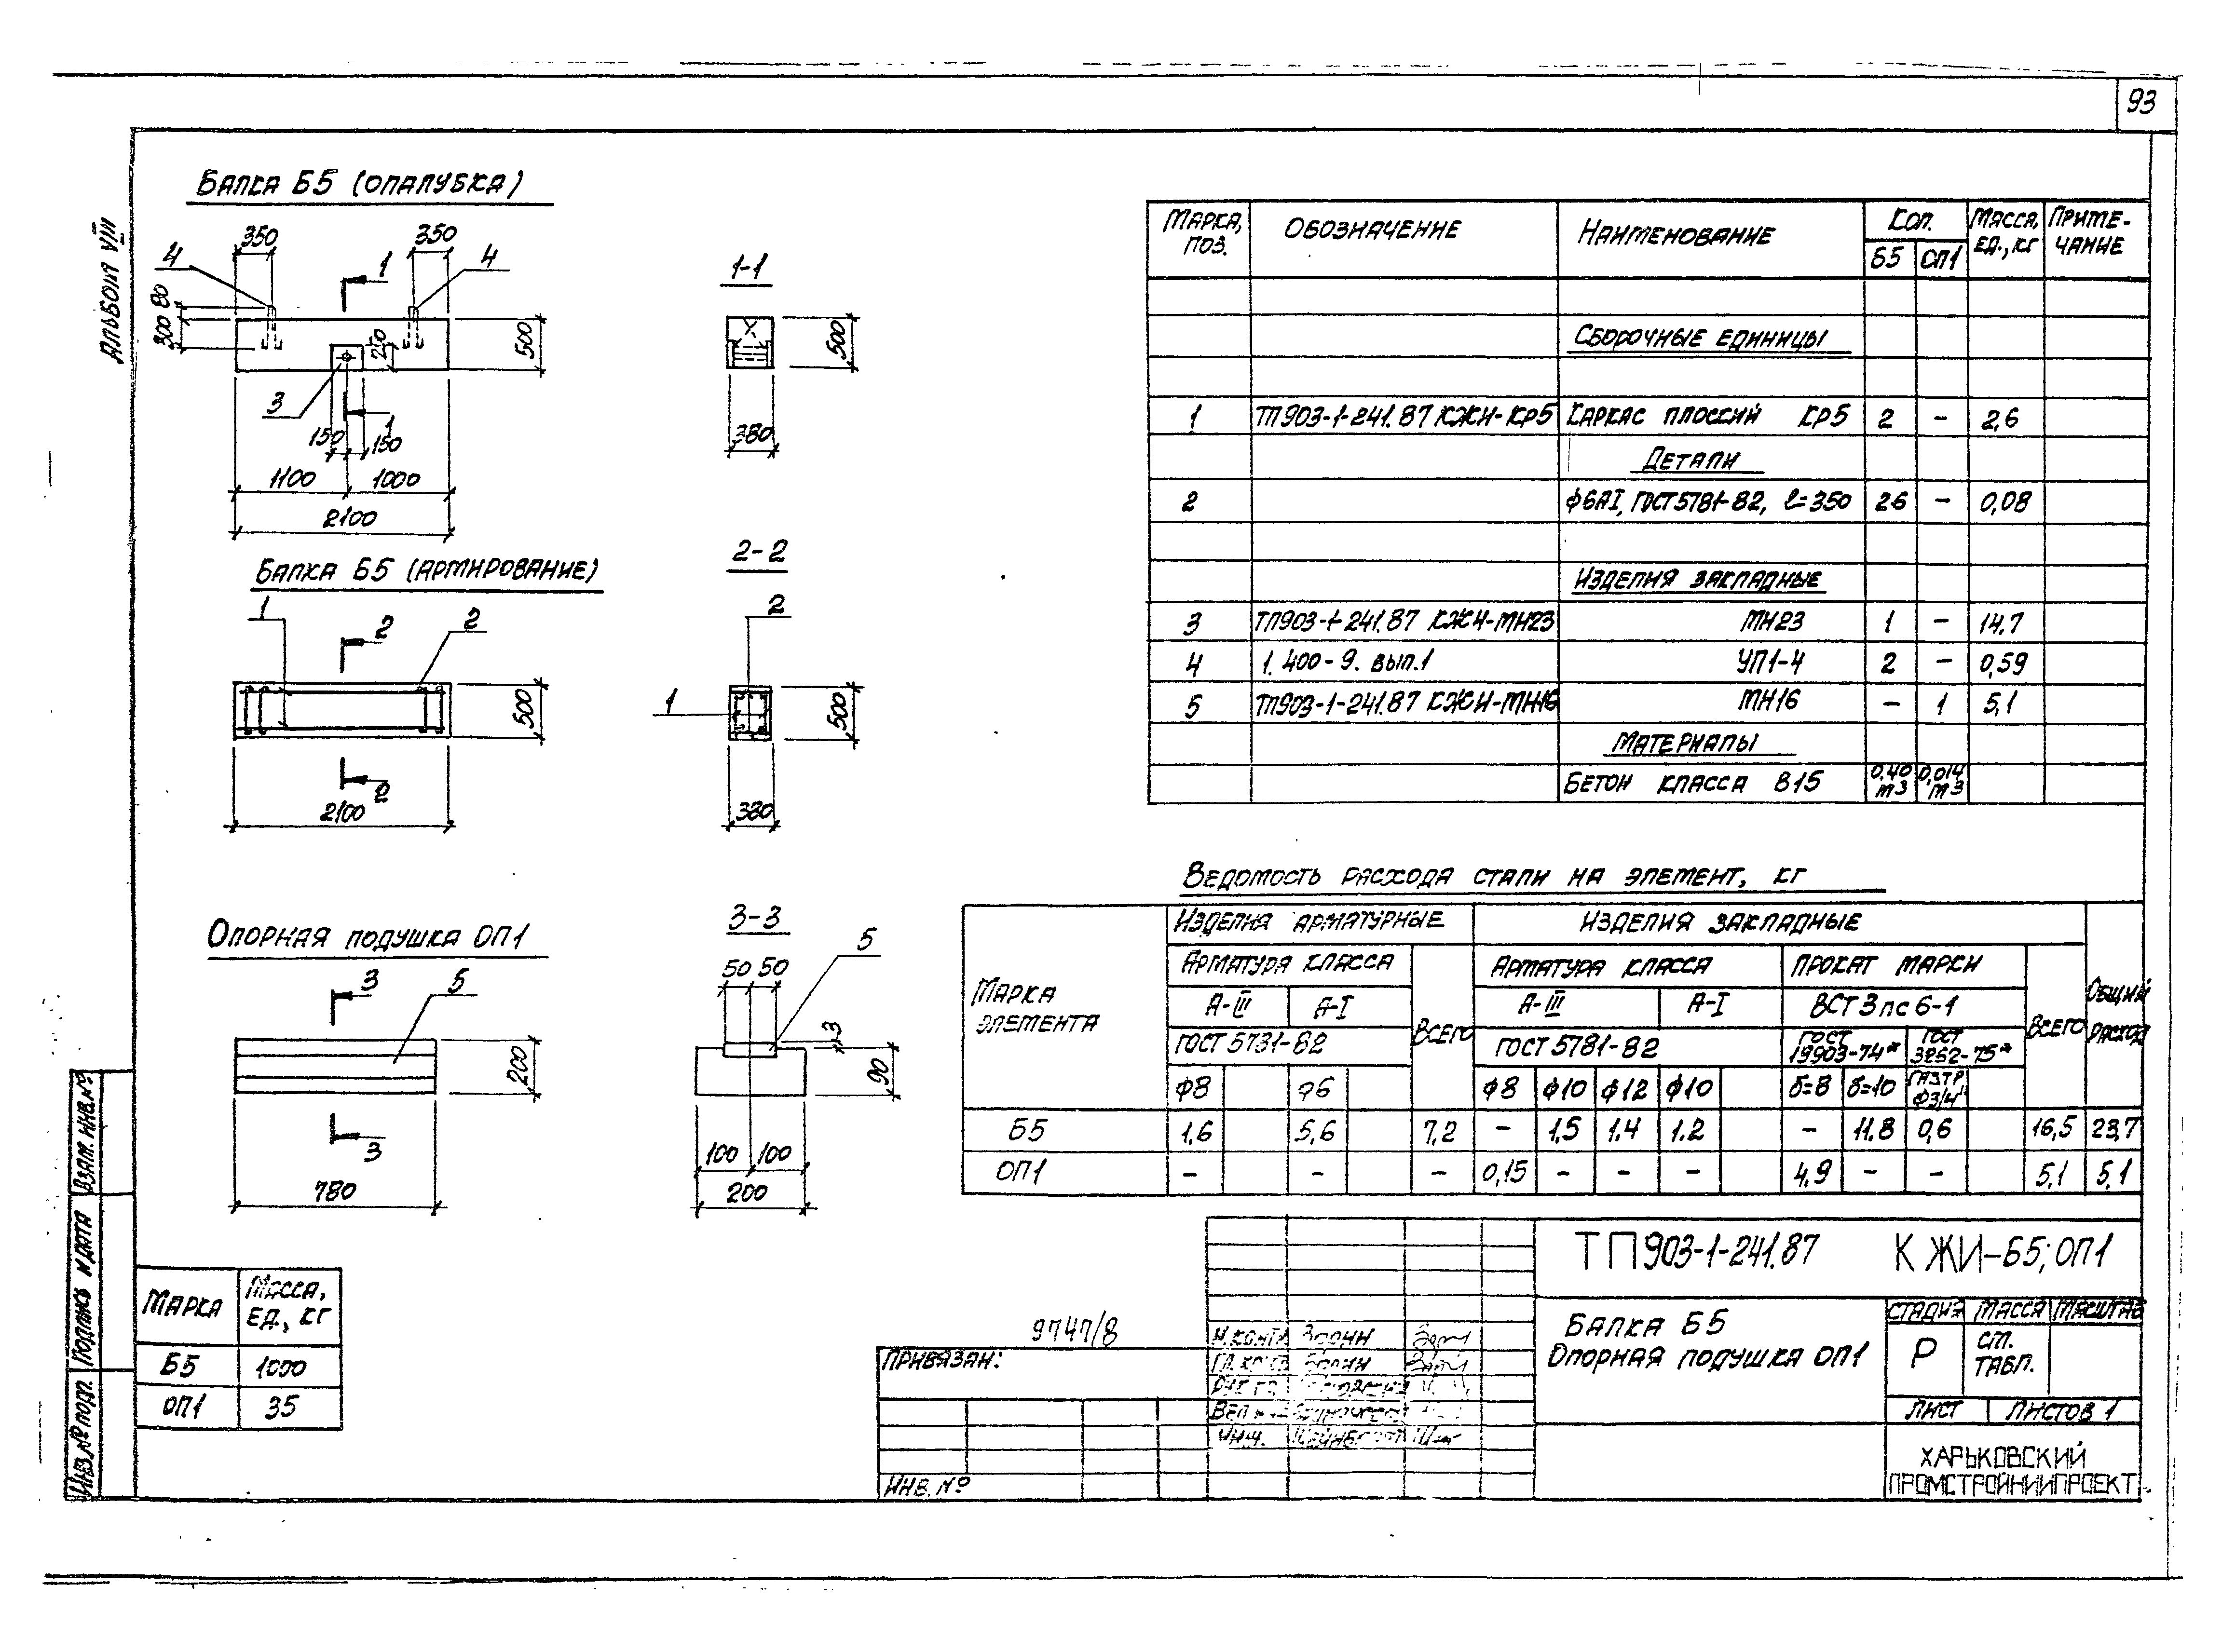 93
АЛЬБОМ VIII
БАЛКА Б5 (ОПАЛУБКА)
350 350
4 1 4
80
300
250
500
3
1
150 150
1100 1000
2100
1-1
500
380
БАЛКА Б5 (АРМИРОВАНИЕ)
1 2 2
500
2
2100
2-2
2
1
500
380
ОПОРНАЯ ПОДУШКА ОП1
3 5
200
3
780
3-3
5
50 50
3
90
100 100
200
МАРКА, ПОЗ. ОБОЗНАЧЕНИЕ НАИМЕНОВАНИЕ КОЛ. МАССА, ЕД., КГ ПРИМЕ-ЧАНИЕ
Б5 ОП1
СБОРОЧНЫЕ ЕДИНИЦЫ
1 ТП903-1-241.87 КЖИ-КР5 КАРКАС ПЛОСКИЙ КР5 2 – 2,6
ДЕТАЛИ
2 ф6АI, ГОСТ5781-82, ℓ=350 26 – 0,08
ИЗДЕЛИЯ ЗАКЛАДНЫЕ
3 ТП903-1-241.87 КЖИ-МН23 МН23 1 – 14,7
4 1.400-9. ВЫП.1 УП1-4 2 – 0,59
5 ТП903-1-241.87 КЖИ-МН16 МН16 – 1 5,1
МАТЕРИАЛЫ
БЕТОН КЛАССА В15 0,40 м3 0,014 м3
ВЕДОМОСТЬ РАСХОДА СТАЛИ НА ЭЛЕМЕНТ, КГ
МАРКА ЭЛЕМЕНТА
ИЗДЕЛИЯ АРМАТУРНЫЕ ИЗДЕЛИЯ ЗАКЛАДНЫЕ ОБЩИЙ РАСХОД
АРМАТУРА КЛАССА ВСЕГО АРМАТУРА КЛАССА ПРОКАТ МАРКИ ВСЕГО
А-III А-I А-III А-I ВСТ3пс6-1
ГОСТ 5781-82 ГОСТ 5781-82 ГОСТ 19903-74* ГОСТ 3262-75*
ф8 ф6 ф8 ф10 ф12 ф10 δ=8 δ=10 ГАЗ.ТР. ф3/4"
Б5 1,6 5,6 7,2 – 1,5 1,4 1,2 – 11.8 0,6 16,5 23,7
ОП1 – – – 0,15 – – – 4,9 – – 5,1 5,1
МАРКА МАССА, ЕД., КГ
Б5 1000
ОП1 35
ВЗАМ. ИНВ.№
ПОДПИСЬ И ДАТА
ИНВ.№ ПОДЛ.
9747/8
ПРИВЯЗАН:
ИНВ. №
Н.КОНТР. ЗАРИН
ИНЖ.
ТП903-1-241.87 КЖИ-Б5; ОП1
БАЛКА Б5
ОПОРНАЯ ПОДУШКА ОП1
СТАДИЯ МАССА МАСШТАБ
Р СМ. ТАБЛ.
ЛИСТ ЛИСТОВ 1
ХАРЬКОВСКИЙ
ПРОМСТРОЙНИИПРОЕКТ